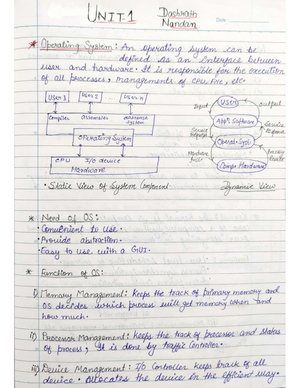 UNIT-1
Dashrath
Nandan
Date
* Operating System: An operating system can be
defined as an Interface between
user and hardware. It is responsible for the execution
of all processes, managements of CPU, file, etc.
User 1 User 2 User n
Compiler Assembler
Operating System
CPU I/O device
Hardware
• Static View of System Component
Input Users output
App. Software
Operat. Sys
Comp. Hardware
Dynamic View
* Need of OS:
• Convenient to use.
• Provide abstraction.
• Easy to use with a GUI.
* Function of OS:
i) Memory Management: Keeps the track of primary memory and
OS decides which process will get memory when and
how much.
ii) Processor Management: Keeps the track of processor and status
of process, It is done by traffic controller.
iii) Device Management: I/O Controller keeps track of all
device. Allocates the device in the efficient way.